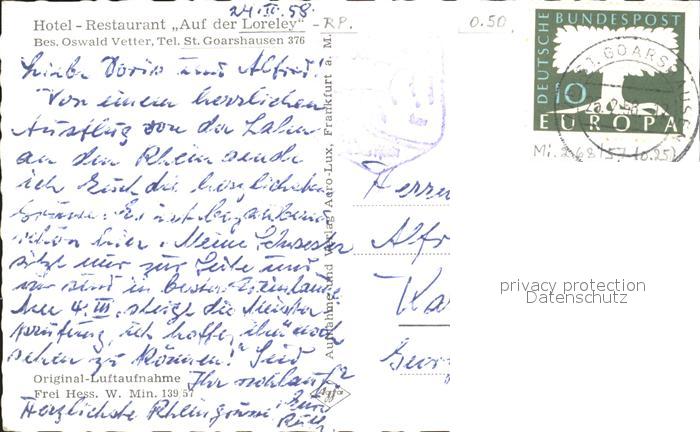 24.II.58.
Hotel - Restaurant „Auf der Loreley" - RP.
0.50
Bes. Oswald Vetter, Tel. St. Goarshausen 376
Liebe Doris und Alfred!
Von einem herrlichen
Ausflug von der Lahn
an den Rhein sende
ich Euch die herzlichsten
Grüsse. Es ist bezaubernd
schön hier. Meine Schwester
sitzt mir zur Seite und
wir sind in bester Weinlaune.
Am 4. III. steigt die Meister-
prüfung, ich hoffe, ihn noch
sehen zu können! Seid
Ihr wohlauf?
Herzlichste Rheingrüsse Eure
Ruth
Original-Luftaufnahme
Frei Hess. W. Min. 139 57
Agfa
Aufnahme und Verlag Aero-Lux, Frankfurt a. M.
DEUTSCHE BUNDESPOST
10
EUROPA
ST. GOARSHAUSEN
Mi. 268/57 (0.25)
Herrn
Alfr
Ka
Georg
privacy protection
Datenschutz